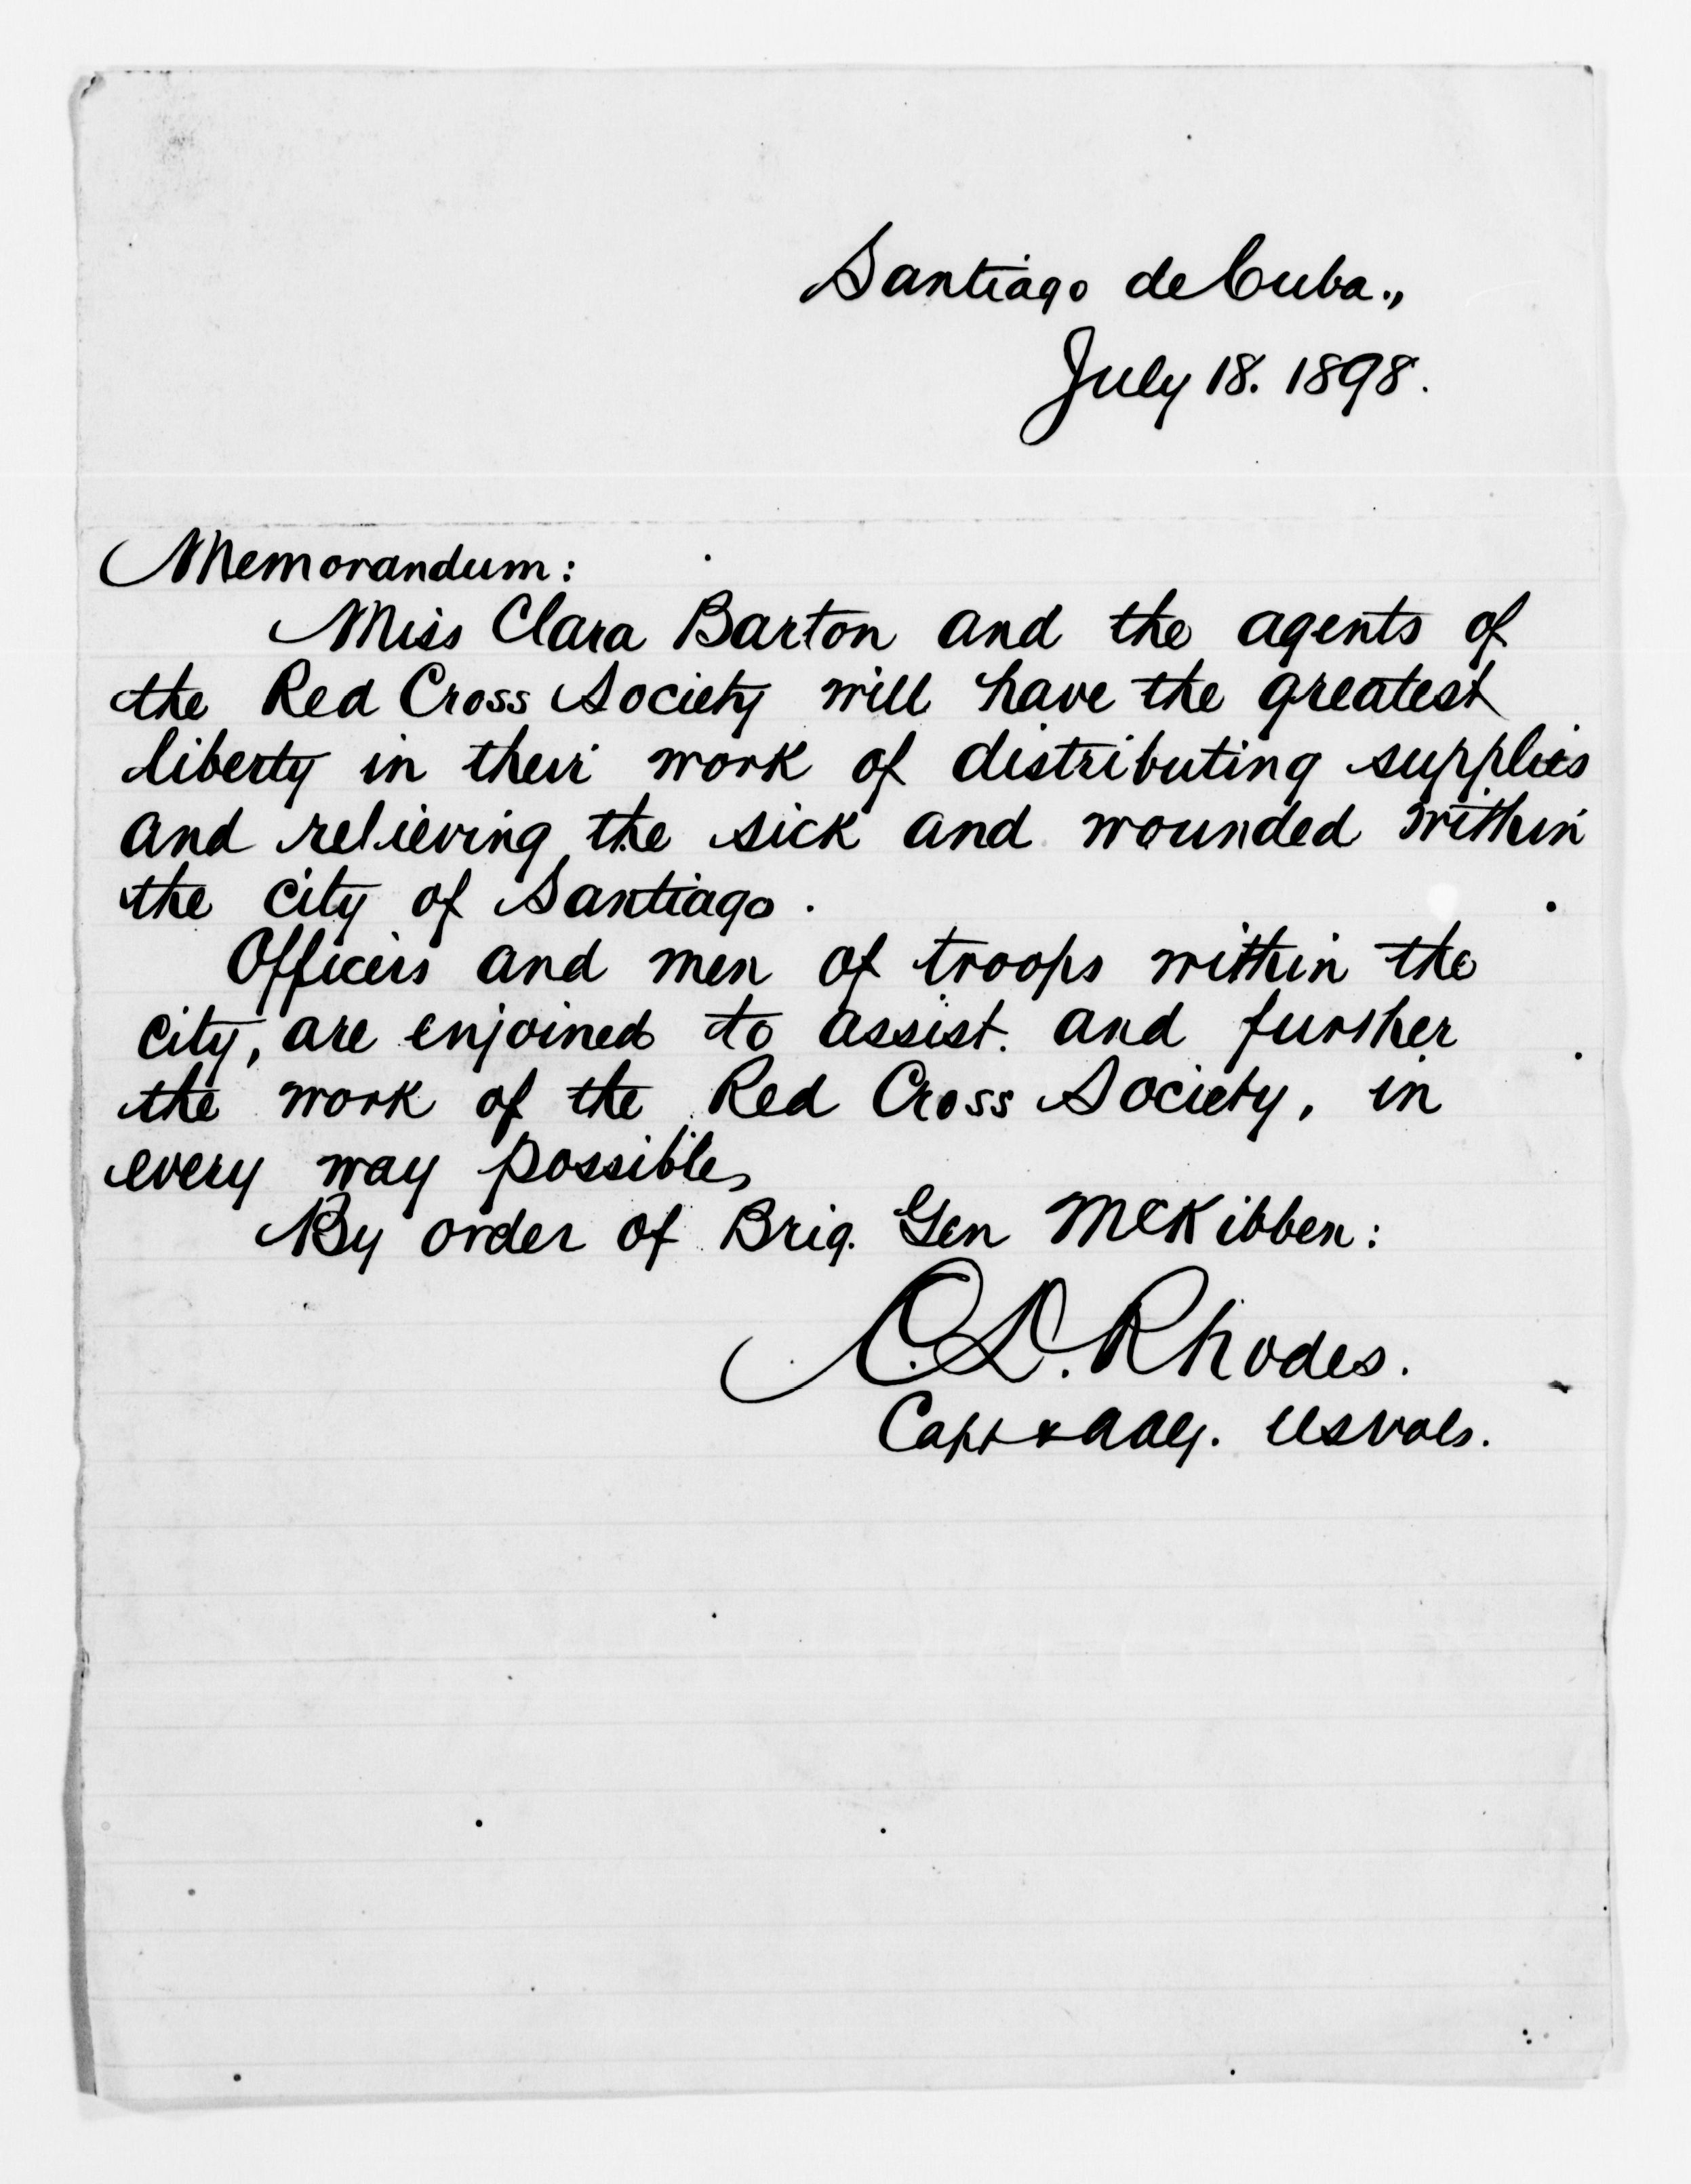 Santiago de Cuba.,
July 18. 1898.
Memorandum:
Miss Clara Barton and the agents of
the Red Cross Society will have the greatest
liberty in their work of distributing supplies
and relieving the sick and wounded within
the city of Santiago.
Officers and men of troops within the
city, are enjoined to assist. and further
the work of the Red Cross Society, in
every way possible,
By order of Brig. Gen McKibben:
C.D. Rhodes.
Capt & AAG. USVols.